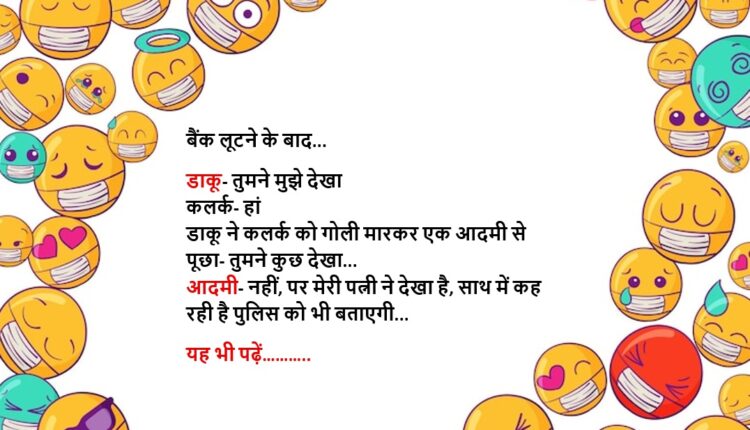 बैंक लूटने के बाद...
डाकू- तुमने मुझे देखा
कलर्क- हां
डाकू ने कलर्क को गोली मारकर एक आदमी से
पूछा- तुमने कुछ देखा...
आदमी- नहीं, पर मेरी पत्नी ने देखा है, साथ में कह
रही है पुलिस को भी बताएगी...
यह भी पढ़ें...........